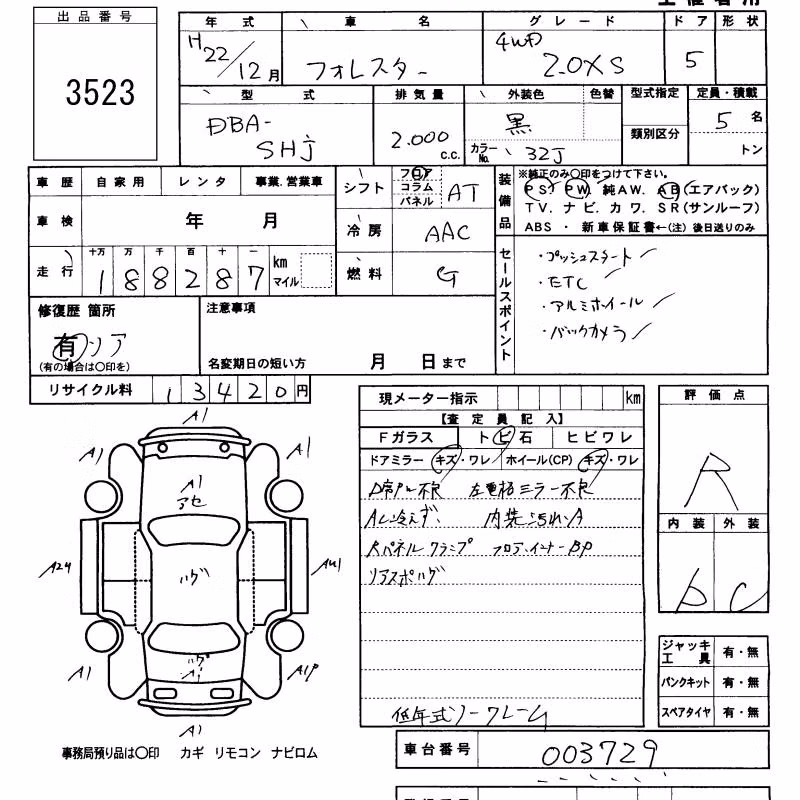 出品番号
3523
年式 車名 グレード ドア 形状
H22/12月 フォレスター 4WD 2.0XS 5
型式 排気量 外装色 色替 型式指定 定員・積載
DBA-SHJ 2.000 c.c. 黒 類別区分 5名
カラーNo. 32J トン
車歴 自家用 レンタ 事業.営業車
車検 年 月
十万 万 千 百 十 一
走行 188287 km マイル
シフト フロア コラム パネル AT
冷房 AAC
燃料 G
装備品
※純正のみ○印をつけて下さい。
PS. PW. 純AW. AB(エアバック)
TV. ナビ. カワ. SR(サンルーフ)
ABS ・ 新車保証書←(注) 後日送りのみ
セールスポイント
・プッシュスタート
・ETC
・アルミホイール
・バックカメラ
修復歴 箇所
有 リア
(有の場合は○印を)
注意事項
名変期日の短い方 月 日まで
リサイクル料 13420円
現メーター指示 km
【査定員記入】
Fガラス トビ石 ヒビワレ
ドアミラー キズ・ワレ ホイール(CP) キズ・ワレ
左電格ミラー不良
AC冷えず、 内装汚れ・A
Rパネルクランプ フロア・インナーBP
リアスポハゲ
低年式ノークレーム
評価点
R
内装 外装
D C
ジャッキ工具 有・無
パンクキット 有・無
スペアタイヤ 有・無
A1
A1 A1
A1
アセ
A24 ハゲ
ハゲ
A1 A1
A1P
A1
事務局預り品は○印 カギ リモコン ナビロム
車台番号 003729